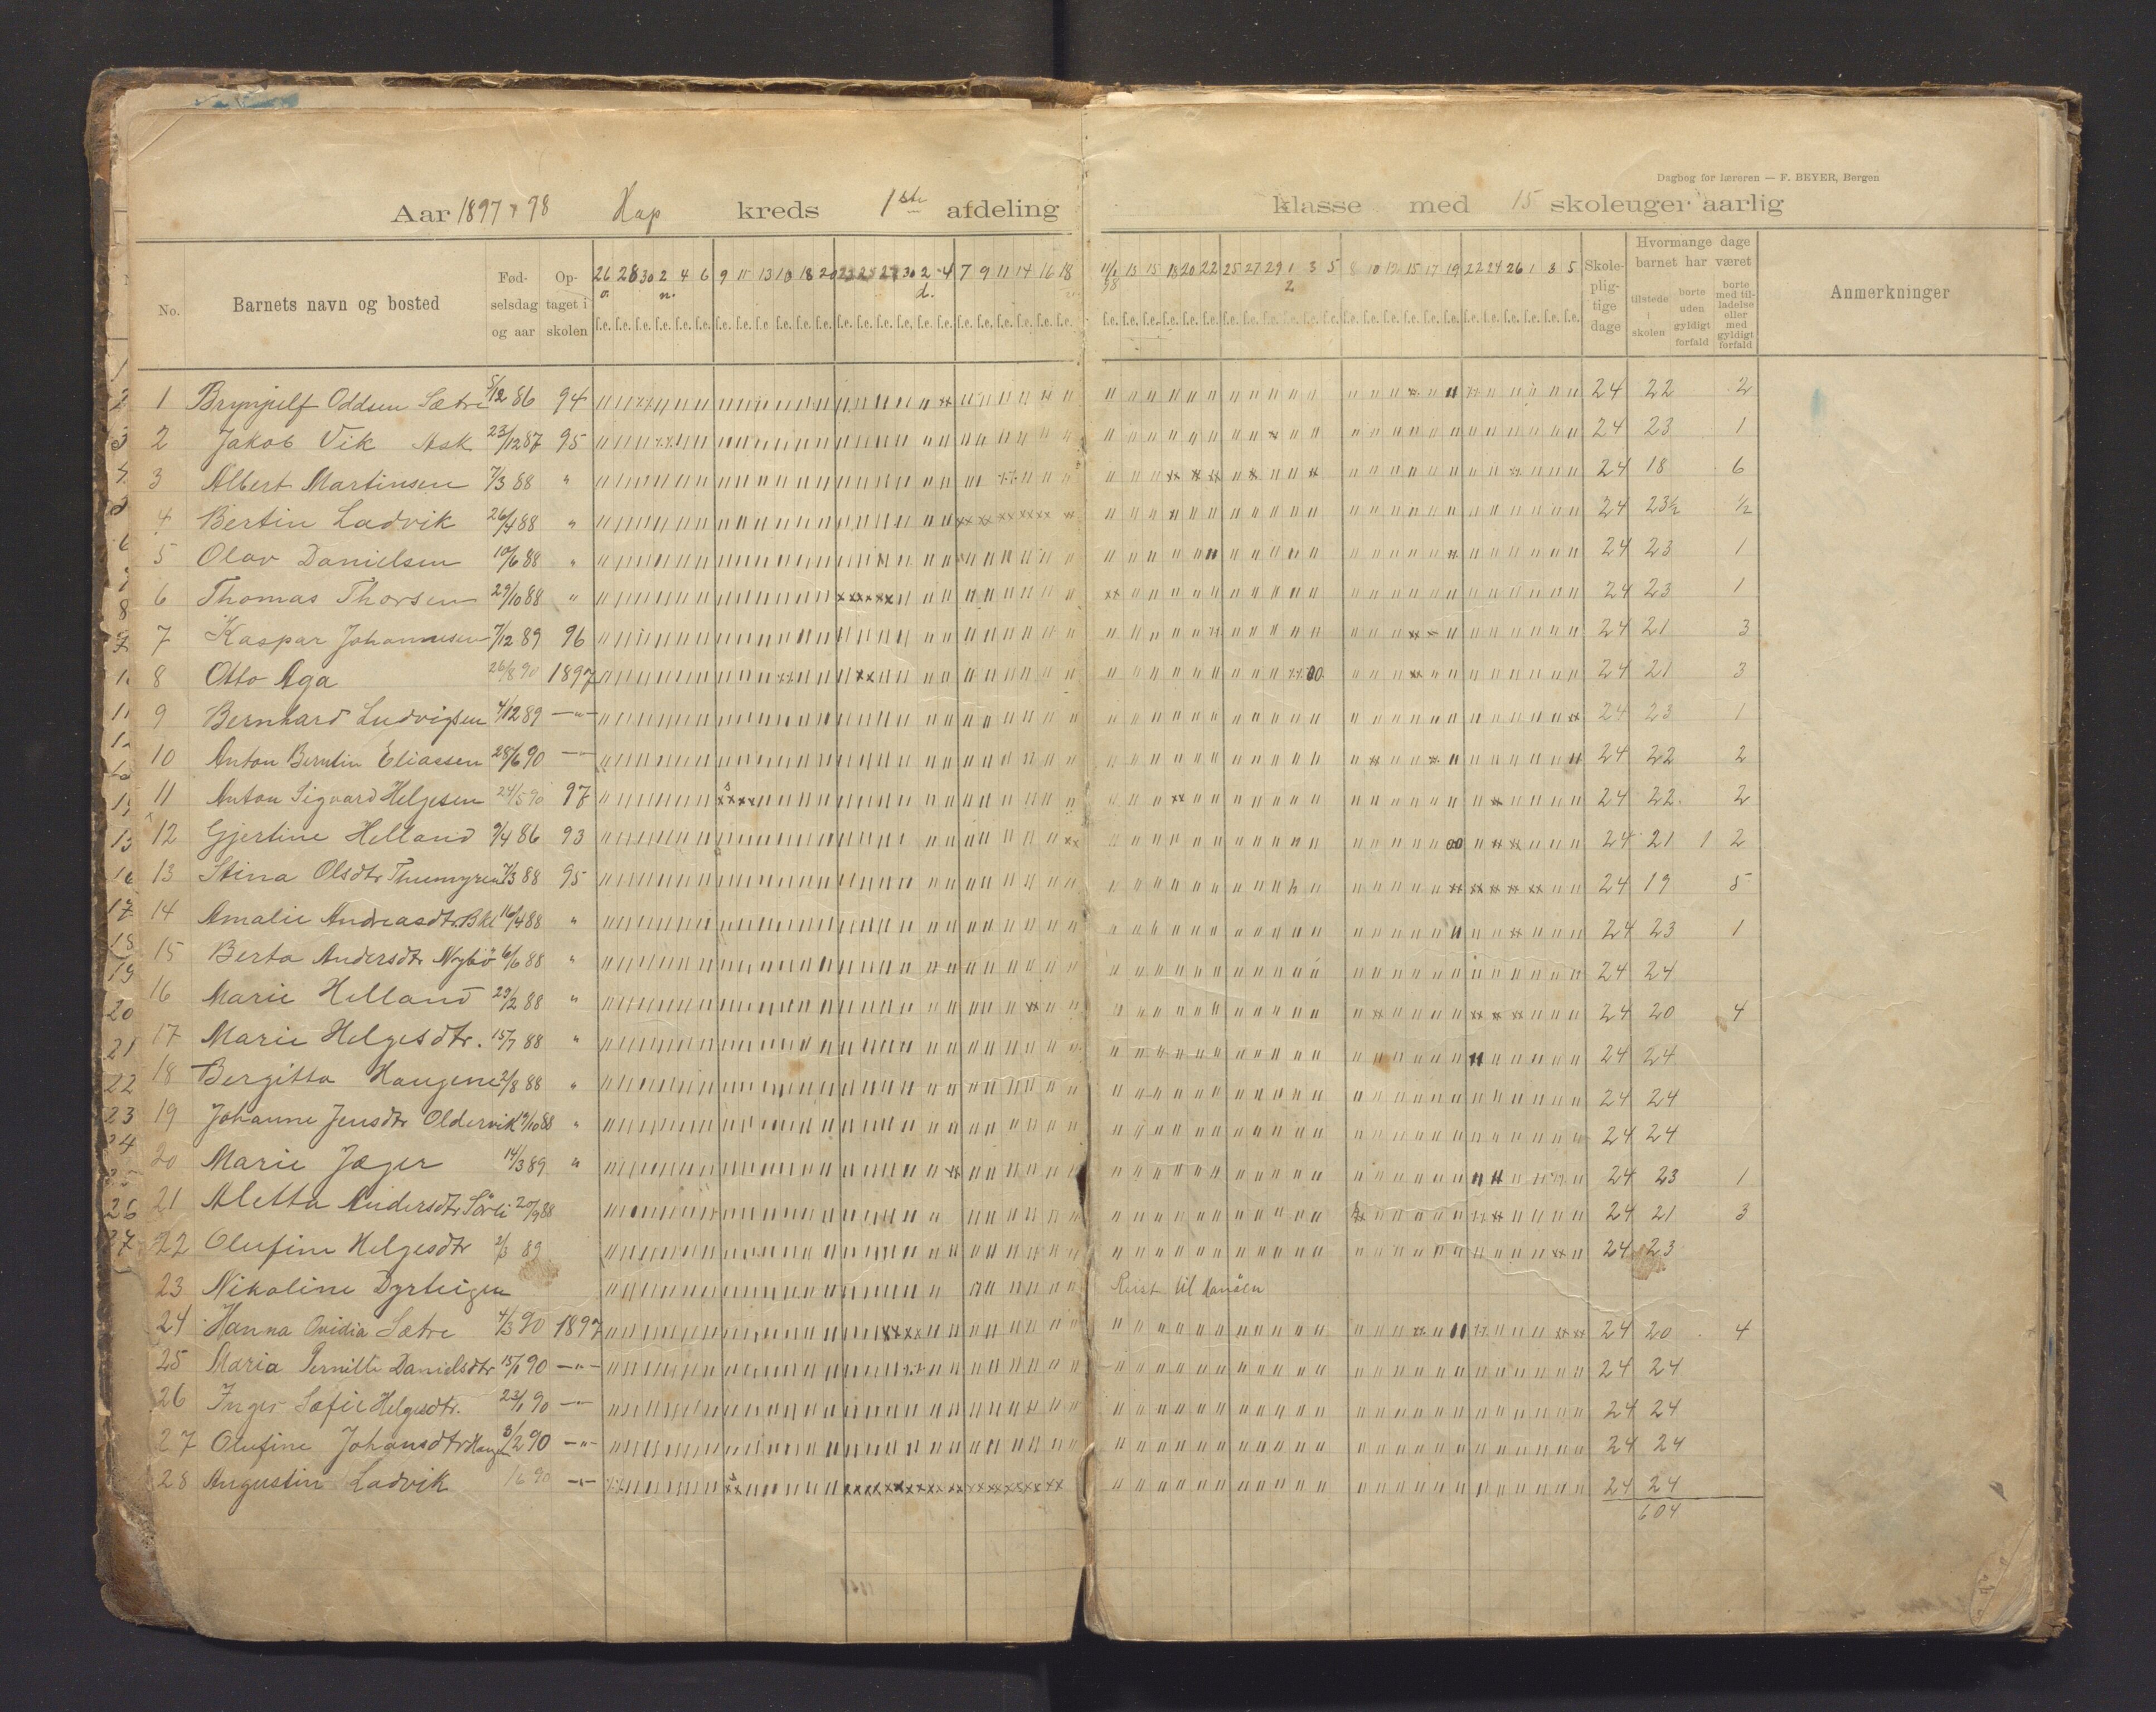 Dagbog for læreren — F. BEYER, Bergen
Aar 1897 & 98 Hap kreds 1ste afdeling klasse med 15 skoleuger aarlig
No. Barnets navn og bosted Fødselsdag og aar Optaget i skolen 26 28 30 2 4 6 9 11 13 16 18 20 23 25 27 30 2 4 7 9 11 14 16 18 11/1 98 13 15 18 20 22 25 27 29 1 3 5 8 10 12 15 17 19 22 24 26 1 3 5 Skolepligtige dage Hvormange dage barnet har været Anmerkninger
o. n. d. 2
tilstede i skolen borte uden gyldigt forfald borte med tilladelse eller med gyldigt forfald
1 Brynjulf Oddsen Sætre 5/12 86 94 24 22 2
2 Jakob Vik Ask 23/12 87 95 24 23 1
3 Albert Martinsen 7/3 88 " 24 18 6
4 Bertin Ladvik 26/4 88 " 24 23½ ½
5 Olav Danielsen 10/6 88 " 24 23 1
6 Thomas Thorsen 29/10 88 " 24 23 1
7 Kaspar Johannesen 7/12 89 96 24 21 3
8 Otto Aga 26/8 90 1897 24 21 3
9 Bernhard Ludvigsen 4/12 89 —"— 24 23 1
10 Anton Berntin Eliassen 28/6 90 —"— 24 22 2
11 Anton Sigvard Helgesen 24/5 90 97 24 22 2
12 Gjertine Helland 9/4 86 93 24 21 1 2
13 Stina Olsdtr 7/3 88 95 24 19 5
14 Amalie Andreasdtr. 16/4 88 " 24 23 1
15 Berta Andersdtr Nybö 6/6 88 " 24 24
16 Marie Helland 29/2 88 " 24 20 4
17 Marie Helgesdtr. 15/7 88 " 24 24
18 Bergitta Haugene 2/8 88 " 24 24
19 Johanne Jensdtr Oldervik 19/10 88 " 24 24
20 Marie Jæger 14/3 89 " 24 23 1
21 Aletta Andersdtr Sörli 20/9 88 24 21 3
22 Olufine Helgesdtr 2/3 89 24 23
23 Nikoline Dyrteigen Reist til
24 Hanna Ovidia Sætre 4/3 90 1897 24 20 4
25 Maria Pernille Danielsdtr 15/1 90 —"— 24 24
26 Inger Sofie Helgesdtr. 23/1 90 —"— 24 24
27 Olufine Johansdtr 3/2 90 —"— 24 24
28 Augustin Ladvik 1/6 90 —"— 24 24
604